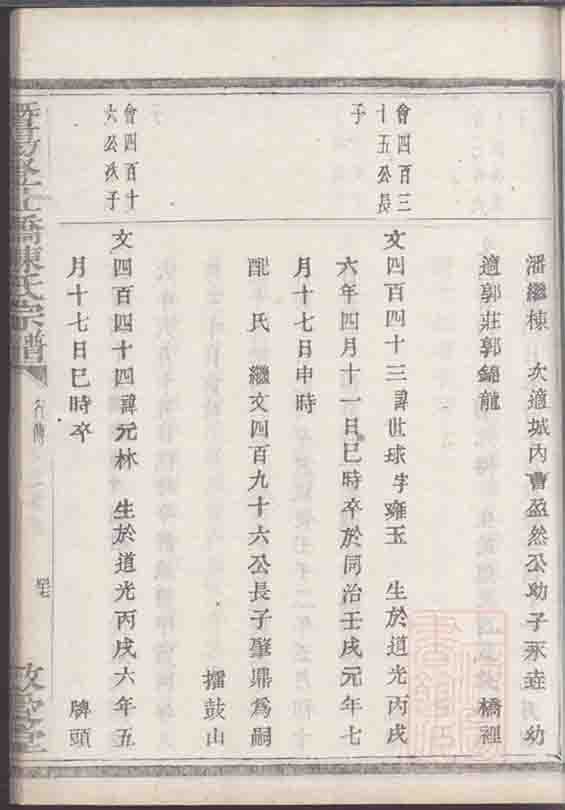 潘繼棟　次適城內曹盈然公助子永逵　幼
適郭莊郭錦龍　橋裡
會四百三
十五公長
子
文四百四十三諱世球字雍玉　生於道光丙戌
六年四月十一日巳時卒於同治壬戌元年七
月十七日申時
配　氏　繼文四百九十六公長子肇鼎為嗣
擂鼓山
會四百十
六公次子
文四百四十四諱元林　生於道光丙戌六年五
月十七日巳時卒　牌頭
橋陳氏宗譜
行傳